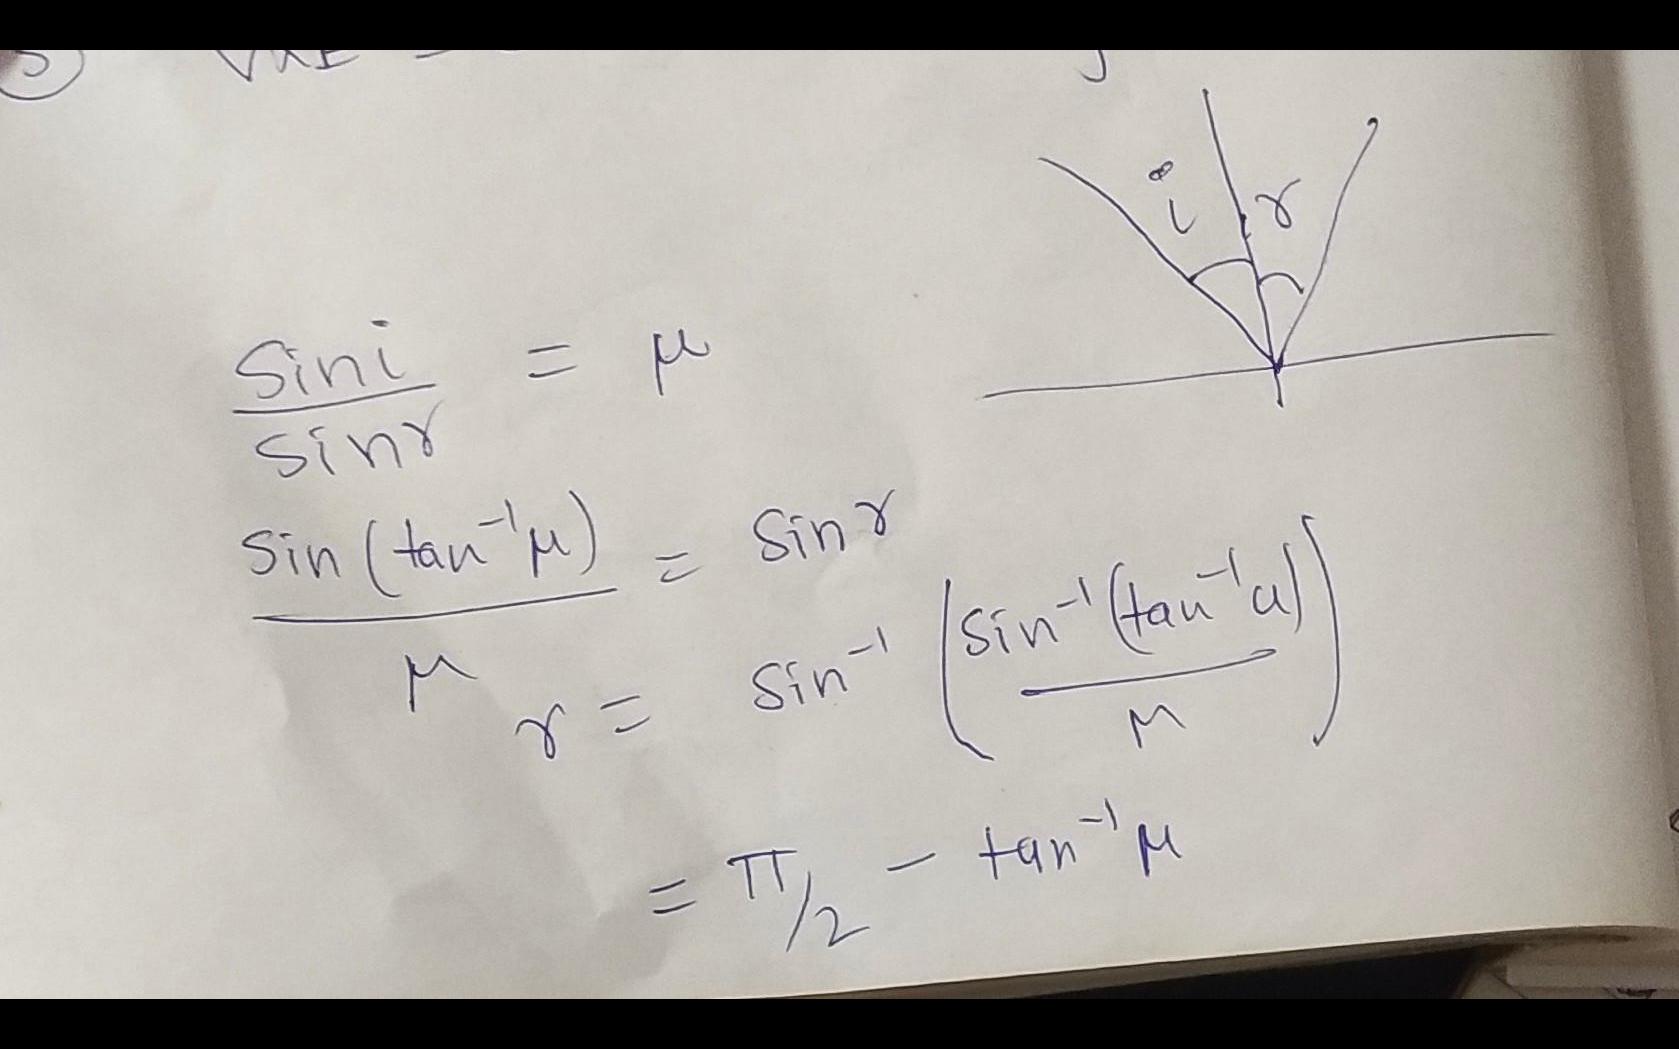 i r
sin i / sin r = μ
sin (tan⁻¹ μ) / μ = sin r
r = sin⁻¹ (sin⁻¹ (tan⁻¹ u) / μ)
= π/2 − tan⁻¹ μ